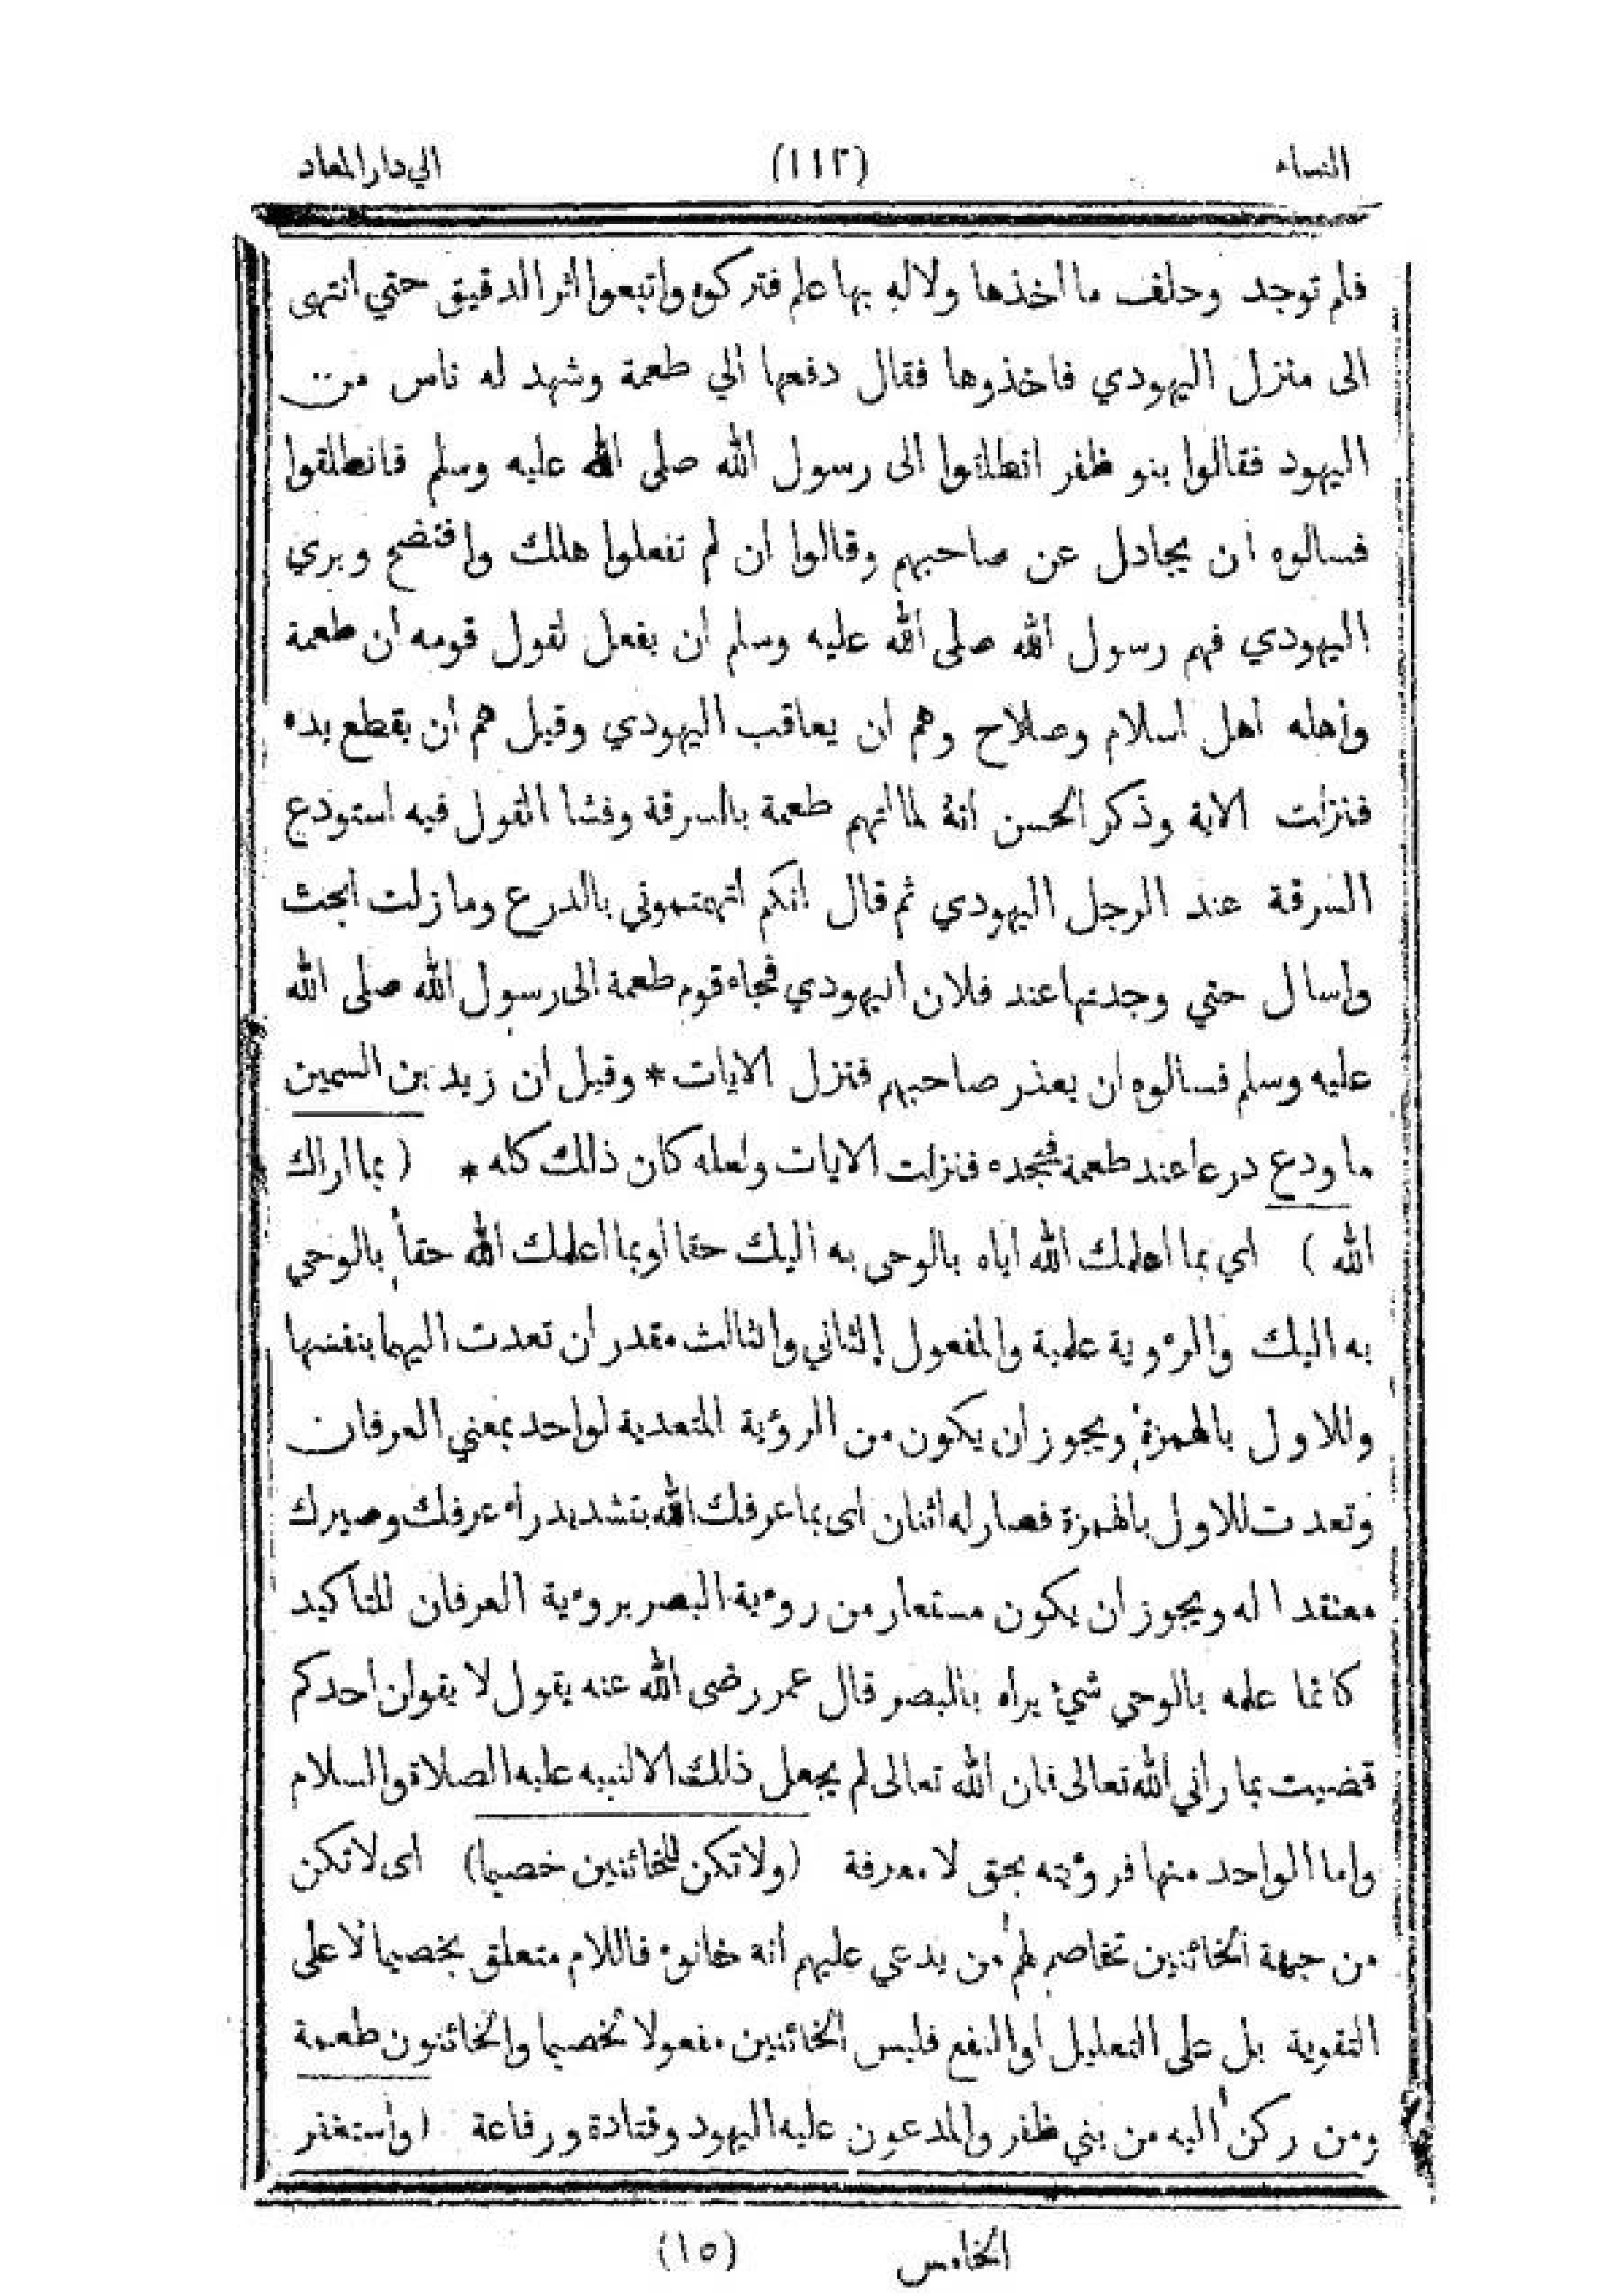 النساء (١١٣) الي دار المعاد
فلم توجد وحلف ما اخذها ولاله بها علم فتركوه واتبعوا اثر الدقيق حتي انتهى
الى منزل اليهودي فاخذوها فقال دفعها الي طعمة وشهد له ناس من
اليهود فقالوا بنو ظفر انطلقوا الى رسول الله صلى الله عليه وسلم فانطلقوا
فسالوه ان يجادل عن صاحبهم وقالوا ان لم تفعلوا هلك وافتضح وبري
اليهودي فهم رسول الله صلى الله عليه وسلم ان يفعل لقول قومه ان طعمة
وأهله اهل اسلام وصلاح وهم ان يعاقب اليهودي وقيل هم ان يقطع يده
فنزلت الاية وذكر الحسن انهُ لما اتهم طعمة بالسرقة وفشا القول فيه استودع
السرقة عند الرجل اليهودي ثم قال انكم اتهمتموني بالدرع وما زلت ابحث
واسال حتي وجدتها عند فلان اليهودي فجاء قوم طعمة الى رسول الله صلى الله
عليه وسلم فسالوه ان يعذر صاحبهم فنزل الايات * وقيل ان زيد بن السمين
ما ودع درعا عند طعمة فجحده فنزلت الايات ولعله كان ذلك كله * ( بما اراك
الله ) اي بما اعلمك الله اياه بالوحى به اليك حقا او بما اعلمك الله حقاً بالوحي
به اليك والرءوية علمية والمفعول الثاني والثالث مقدر ان تعدت اليهما بنفسها
وللاول بالهمزة ويجوز ان يكون من الرؤية المتعدية لواحد بمعني العرفان
وتعدت للاول بالهمزة فصار له اثنان اى بما عرفك الله بتشديد راء عرفك وصيرك
معتقدا له ويجوز ان يكون مستعار من روءية البصر بروءية العرفان للتاكيد
كانما علمه بالوحي شيء يراه بالبصر قال عمر رضى الله عنه يقول لا يقولن احدكم
قضيت بما راني الله تعالى فان الله تعالى لم يجعل ذلك الا لنبيه عليه الصلاة والسلام
واما الواحد منها فروءيته بحق لا معرفة (ولا تكن للخائنين خصيما) اى لا تكن
من جهة الخائنين تخاصم لهم من يدعي عليهم انه خانوه فاللام متعلق بخصيما لا على
التقوية بل على التعليل او النفع فليس الخائنين مفعولا لخصيما والخائنون طعمة
ومن ركن اليه من بني ظفر والمدعون عليه اليهود وقتادة ورفاعة (واستغفر
الخامس (١٥)